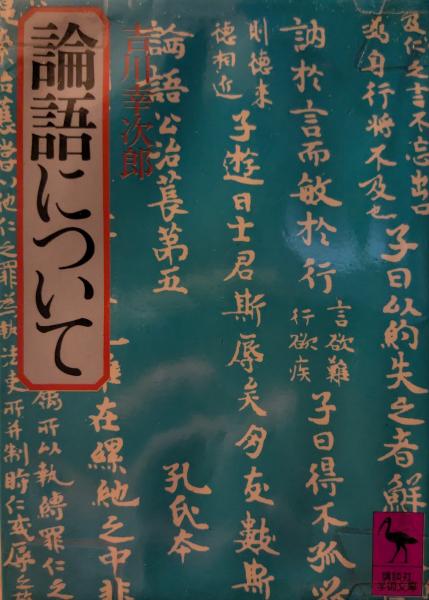 論語について
吉川幸次郎
子曰以約失之者鮮
訥於言而敏於行
言欲難
行欲疾
子曰得不孤
則德來
德相近
子遊曰士君斯辱矣朋友數斯
論語公冶萇第五
孔氏本
在縲紲之中非
所以執縛罪仁之
講談社
学術文庫